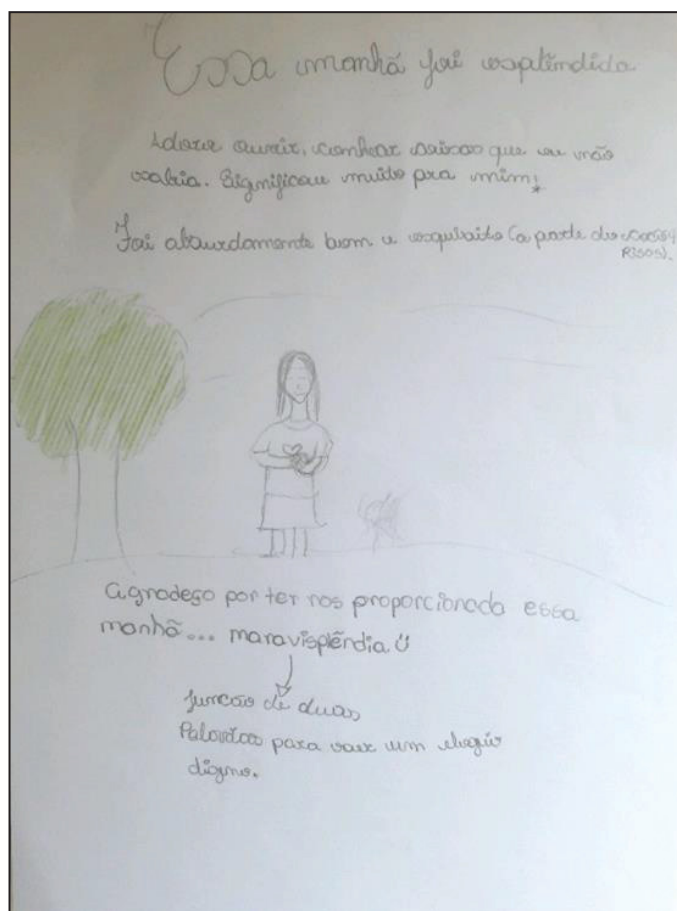 Essa manhã foi esplêndida
Adorei ouvir, conhecer coisas que eu não
sabia. Significou muito pra mim!
Foi absurdamente bom e esquisito (a parte dos
RISOS).
Agradeço por ter nos proporcionado essa
manhã... maravisplêndia.
junção de duas
Palavras para ser um elogio
digno.